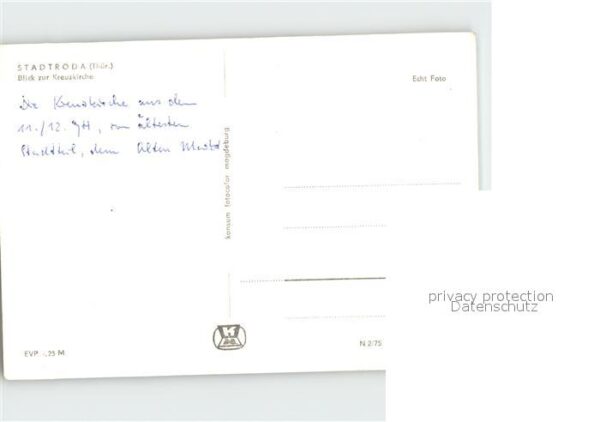 STADTRODA (Thür.)
Blick zur Kreuzkirche
Echt Foto
Die Kreuzkirche aus dem
11./12. JH, im ältesten
Stadtteil, dem Alten Markt
konsum fotocolor magdeburg
privacy protection
Datenschutz
EVP -,25 M
N 2/75